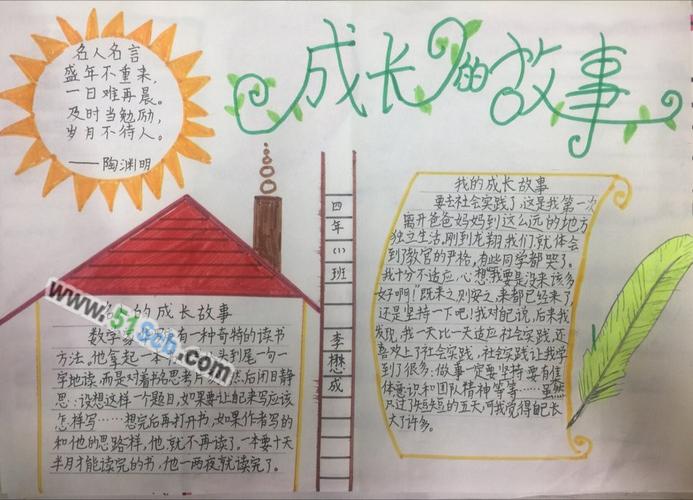 成长的故事
名人名言
盛年不重来,
一日难再晨。
及时当勉励,
岁月不待人。
——陶渊明
四年(1)班
李懋成
的成长故事
数学 有一种奇特的读书
方法,他拿起一本 头到尾一句一
字地读,而是对着书名思考片 然后闭目静
思:设想这样一个题目,如果要让自己来写应该
怎样写……想完后再打开书,如果作者写的
和他的思路样,他就不再读了。一本要十天
半月才能读完的书,他一两夜就读完了。
www.51Scb.com
我的成长故事
要去社会实践了,这是我第一次
离开爸爸妈妈到这么远的地方
独立生活,刚到龙翔我们就体会
到了教官的严格,有些同学都哭了。
我十分不适应,心想我要是没来该多
好啊!"既来之,则安之,来都已经来了,
还是坚持一下吧!我对自己说,后来我
发现,我一天比一天适应社会实践,还
喜欢上了社会实践,社会实践让我学
到了很多:做事一定要坚持,要有集
体意识和团队精神等等……虽然
只过了短短的五天,可我觉得自己长
大了许多。